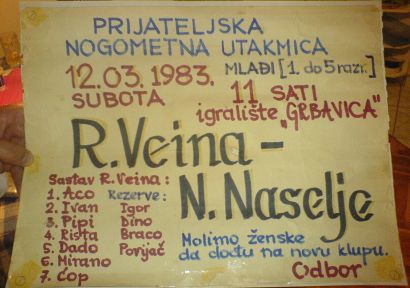 PRIJATELJSKA
NOGOMETNA UTAKMICA
12.03.1983. MLAĐI [1. do 5 razr.]
SUBOTA 11 SATI
igralište „GRBAVICA"
R. Veina -
N. Naselje
Sastav R. Veina:
1. Aco Rezerve:
2. Ivan Igor
3. Pipi Dino
4. Rista Braco
5. Dado Povijač
6. Mirano
7. Ćop
Molimo ženske
da dođu na novu klupu.
Odbor